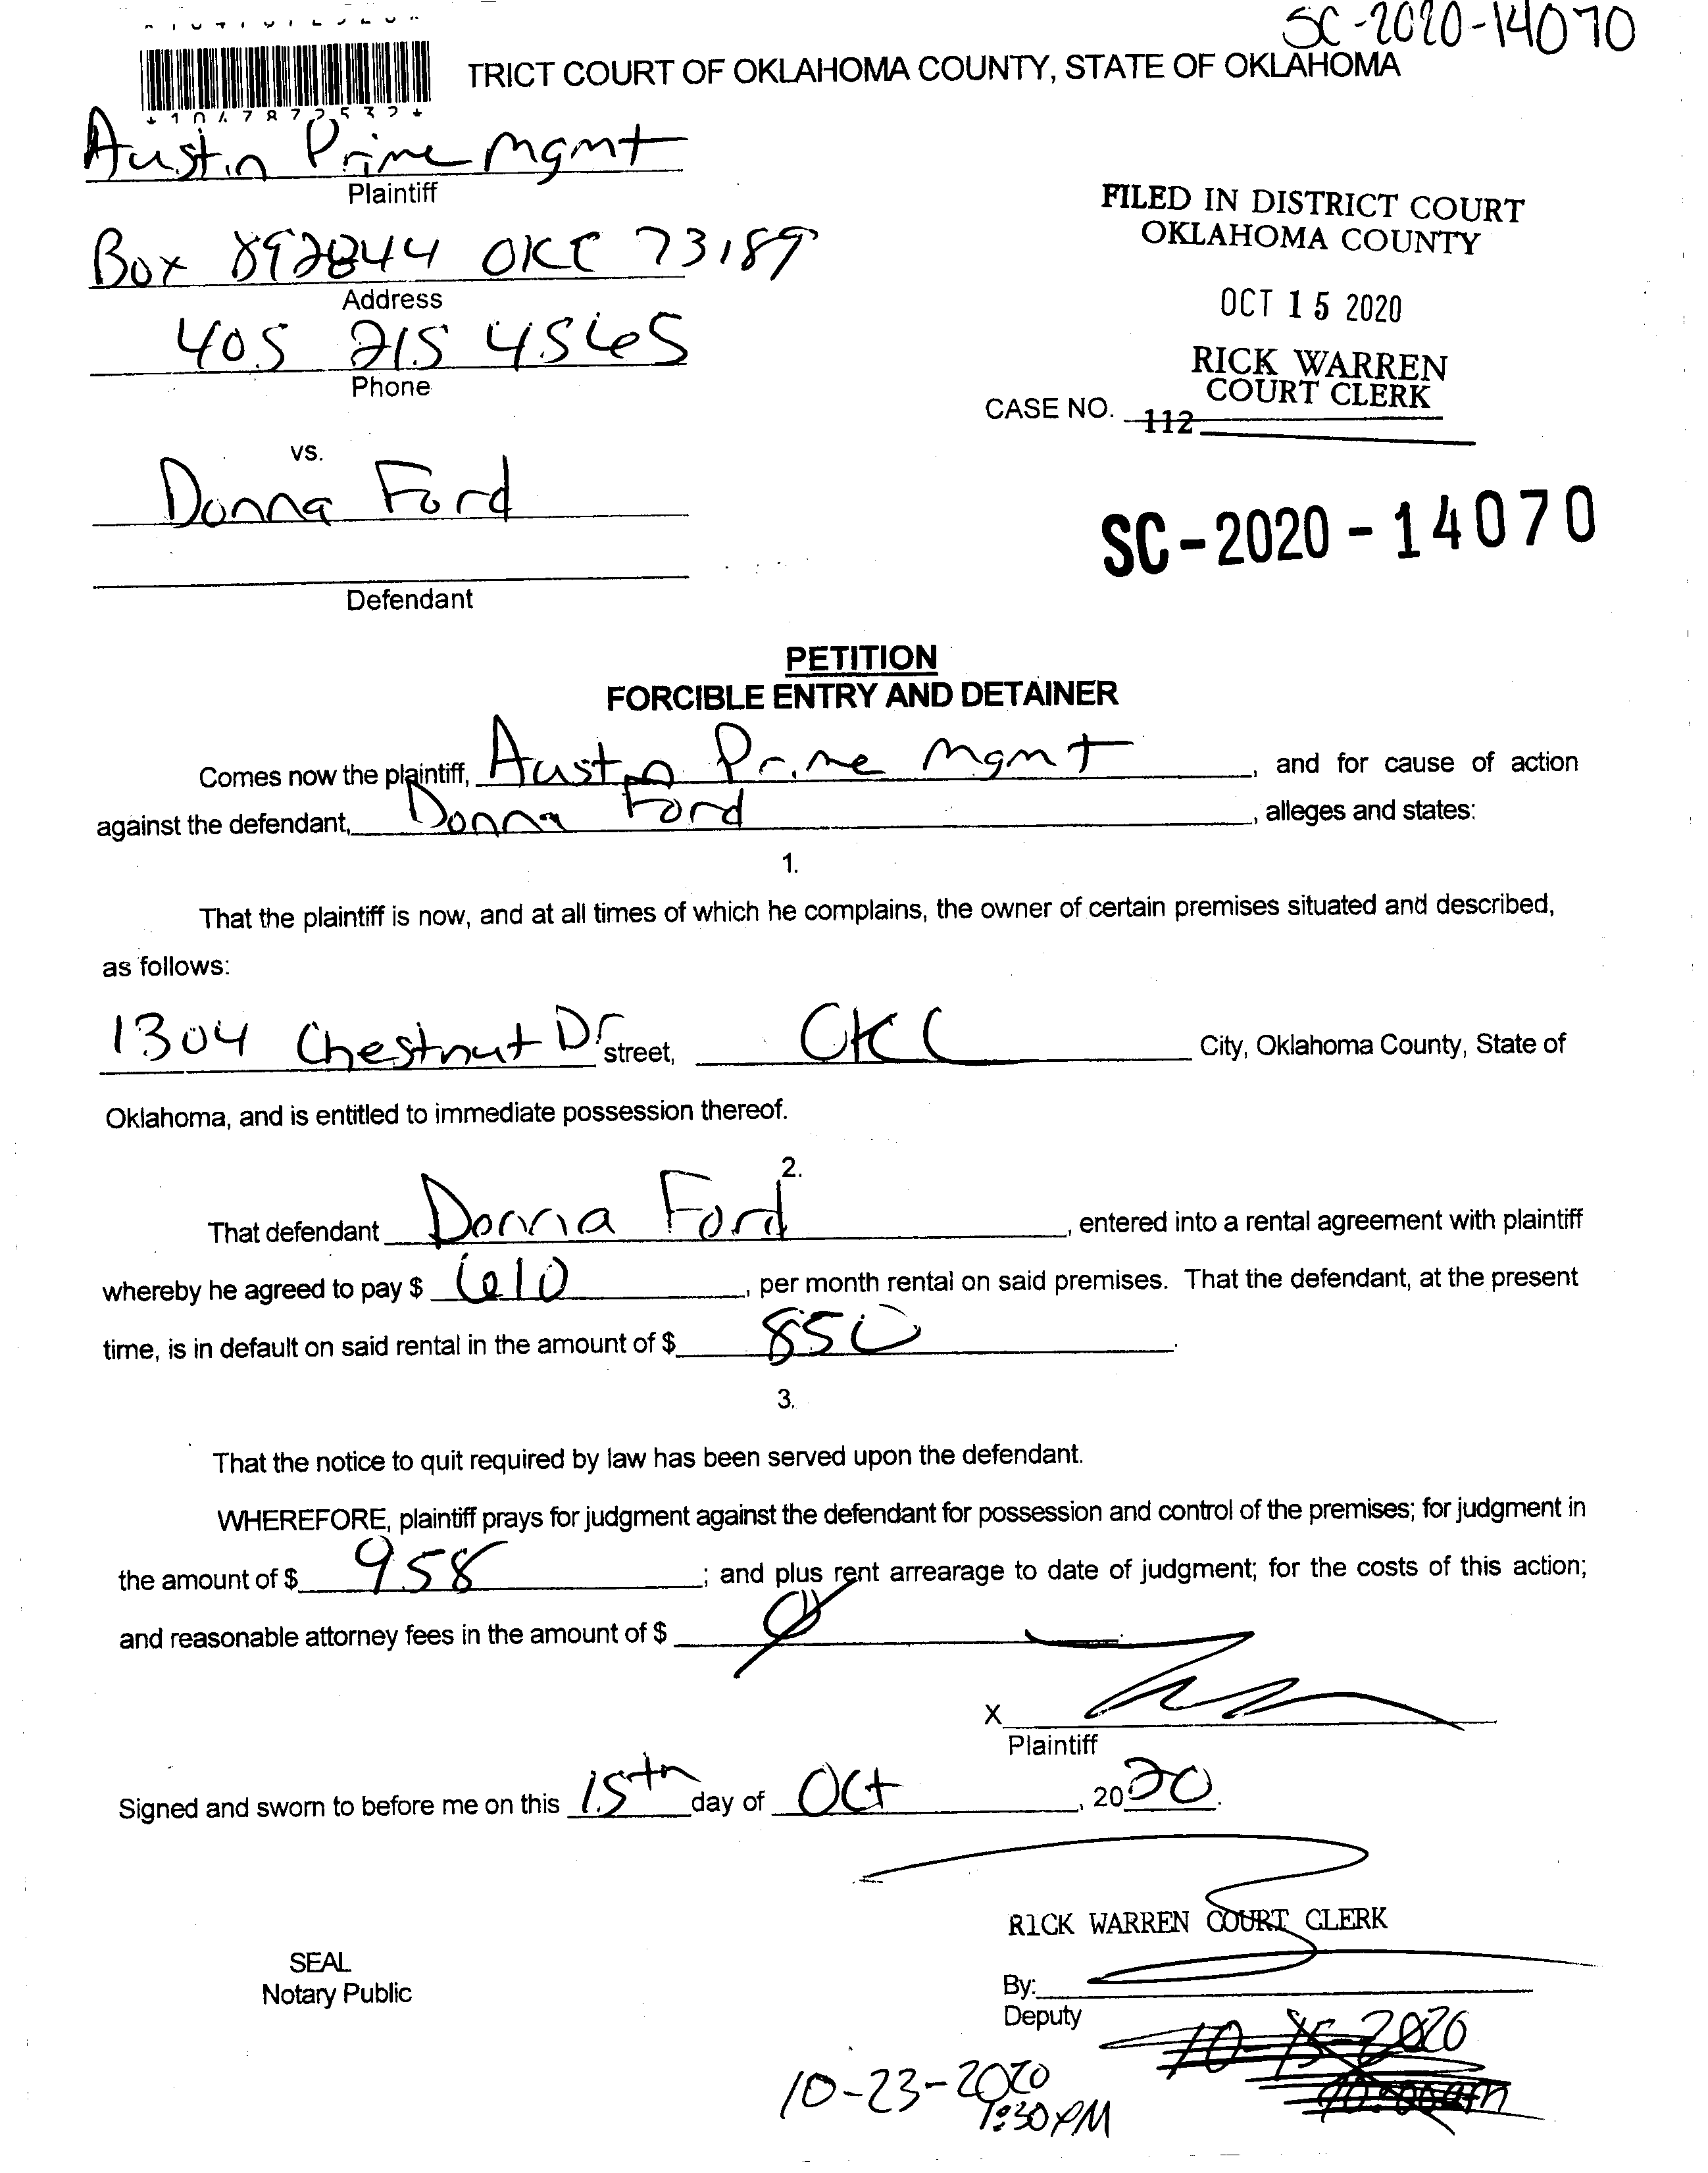 SC-2020-14070
TRICT COURT OF OKLAHOMA COUNTY, STATE OF OKLAHOMA
*1047872532*
Austin Prime Mgmt
Plaintiff
Box 892844 OKC 73189
Address
405 215 4565
Phone
vs.
Donna Ford
Defendant
FILED IN DISTRICT COURT
OKLAHOMA COUNTY
OCT 15 2020
RICK WARREN
COURT CLERK
CASE NO. 112
SC-2020-14070
PETITION
FORCIBLE ENTRY AND DETAINER
Comes now the plaintiff, Austin Prime Mgmt, and for cause of action
against the defendant, Donna Ford, alleges and states:
1.
That the plaintiff is now, and at all times of which he complains, the owner of certain premises situated and described,
as follows:
1304 Chestnut Dr street, OKC City, Oklahoma County, State of
Oklahoma, and is entitled to immediate possession thereof.
2.
That defendant Donna Ford, entered into a rental agreement with plaintiff
whereby he agreed to pay $ 610, per month rental on said premises. That the defendant, at the present
time, is in default on said rental in the amount of $ 850.
3.
That the notice to quit required by law has been served upon the defendant.
WHEREFORE, plaintiff prays for judgment against the defendant for possession and control of the premises; for judgment in
the amount of $ 958; and plus rent arrearage to date of judgment; for the costs of this action;
and reasonable attorney fees in the amount of $ 0.
X
Plaintiff
Signed and sworn to before me on this 15th day of Oct, 2020.
RICK WARREN COURT CLERK
SEAL
Notary Public
By:
Deputy
10-15-2020
10:00am
10-23-2020
1:30PM